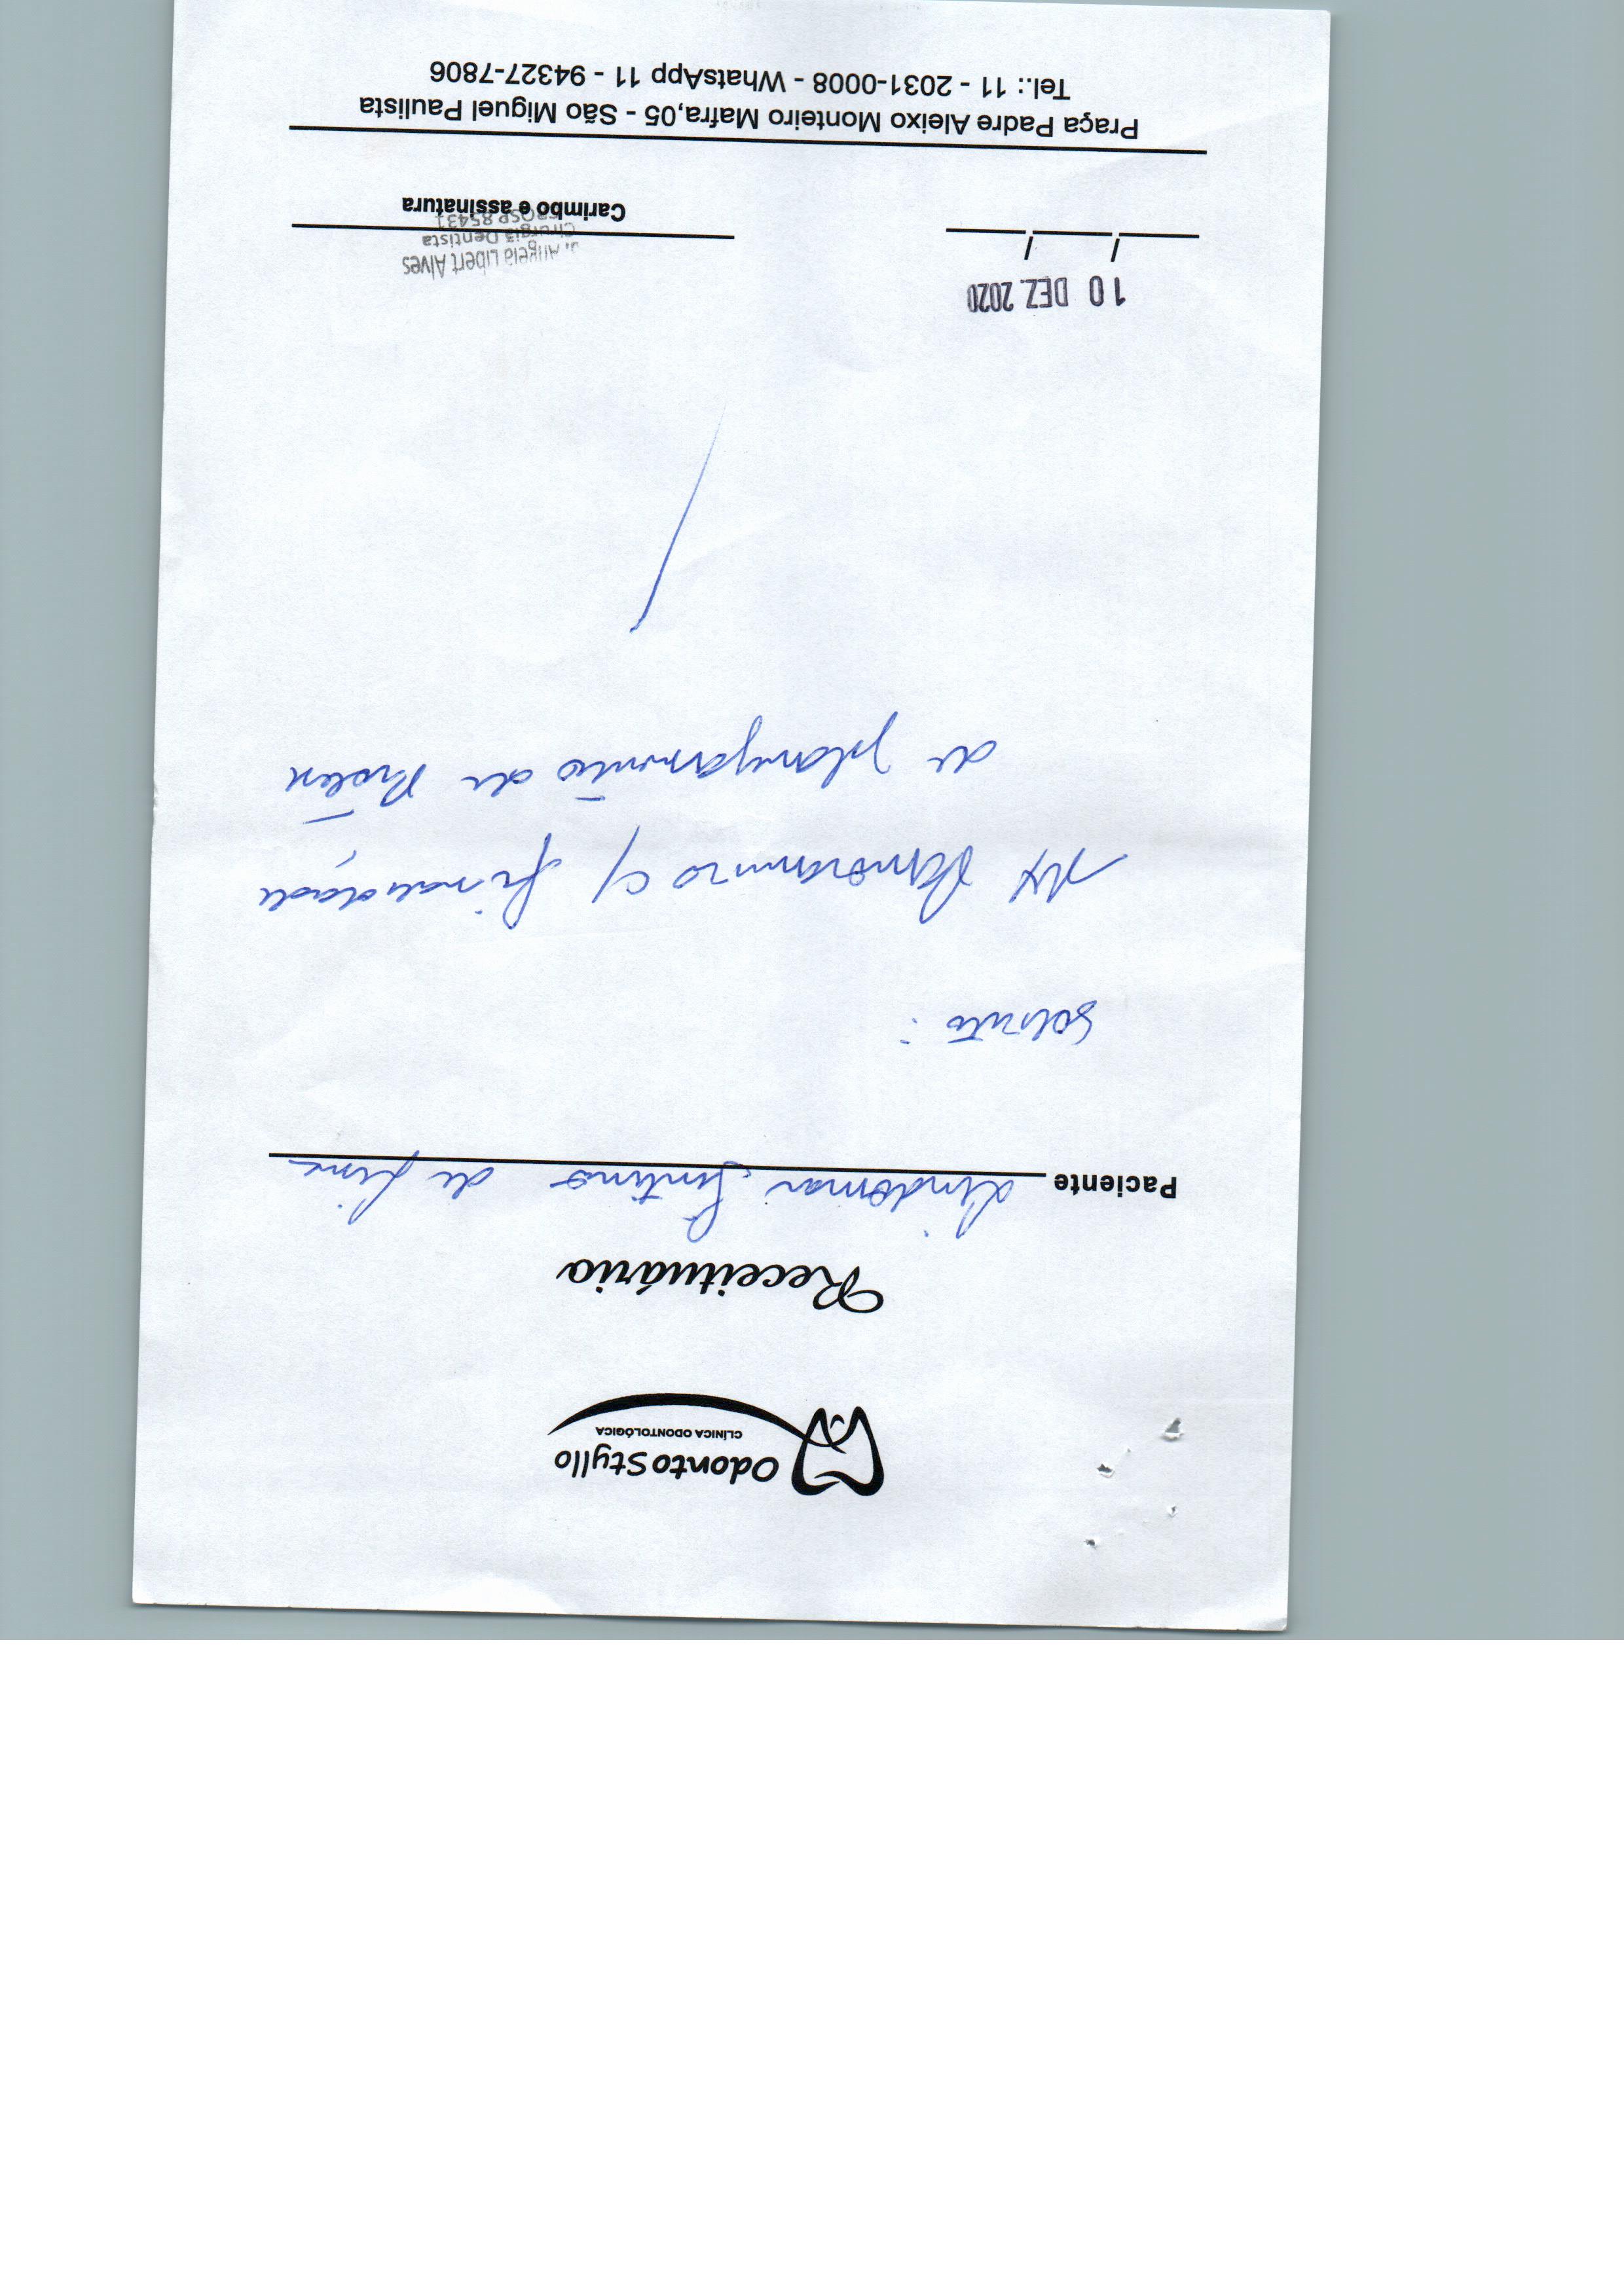 OdontoStyllo
CLÍNICA ODONTOLÓGICA
Receituário
Paciente Lindomar de Lima
Solicito:
RX Panorâmico c/ finalidade
de planejamento de
10 DEZ. 2020
/ /
Angela Libert Alves
Cirurgiã Dentista
CROSP 85431
Carimbo e assinatura
Praça Padre Aleixo Monteiro Mafra,05 - São Miguel Paulista
Tel.: 11 - 2031-0008 - WhatsApp 11 - 94327-7806